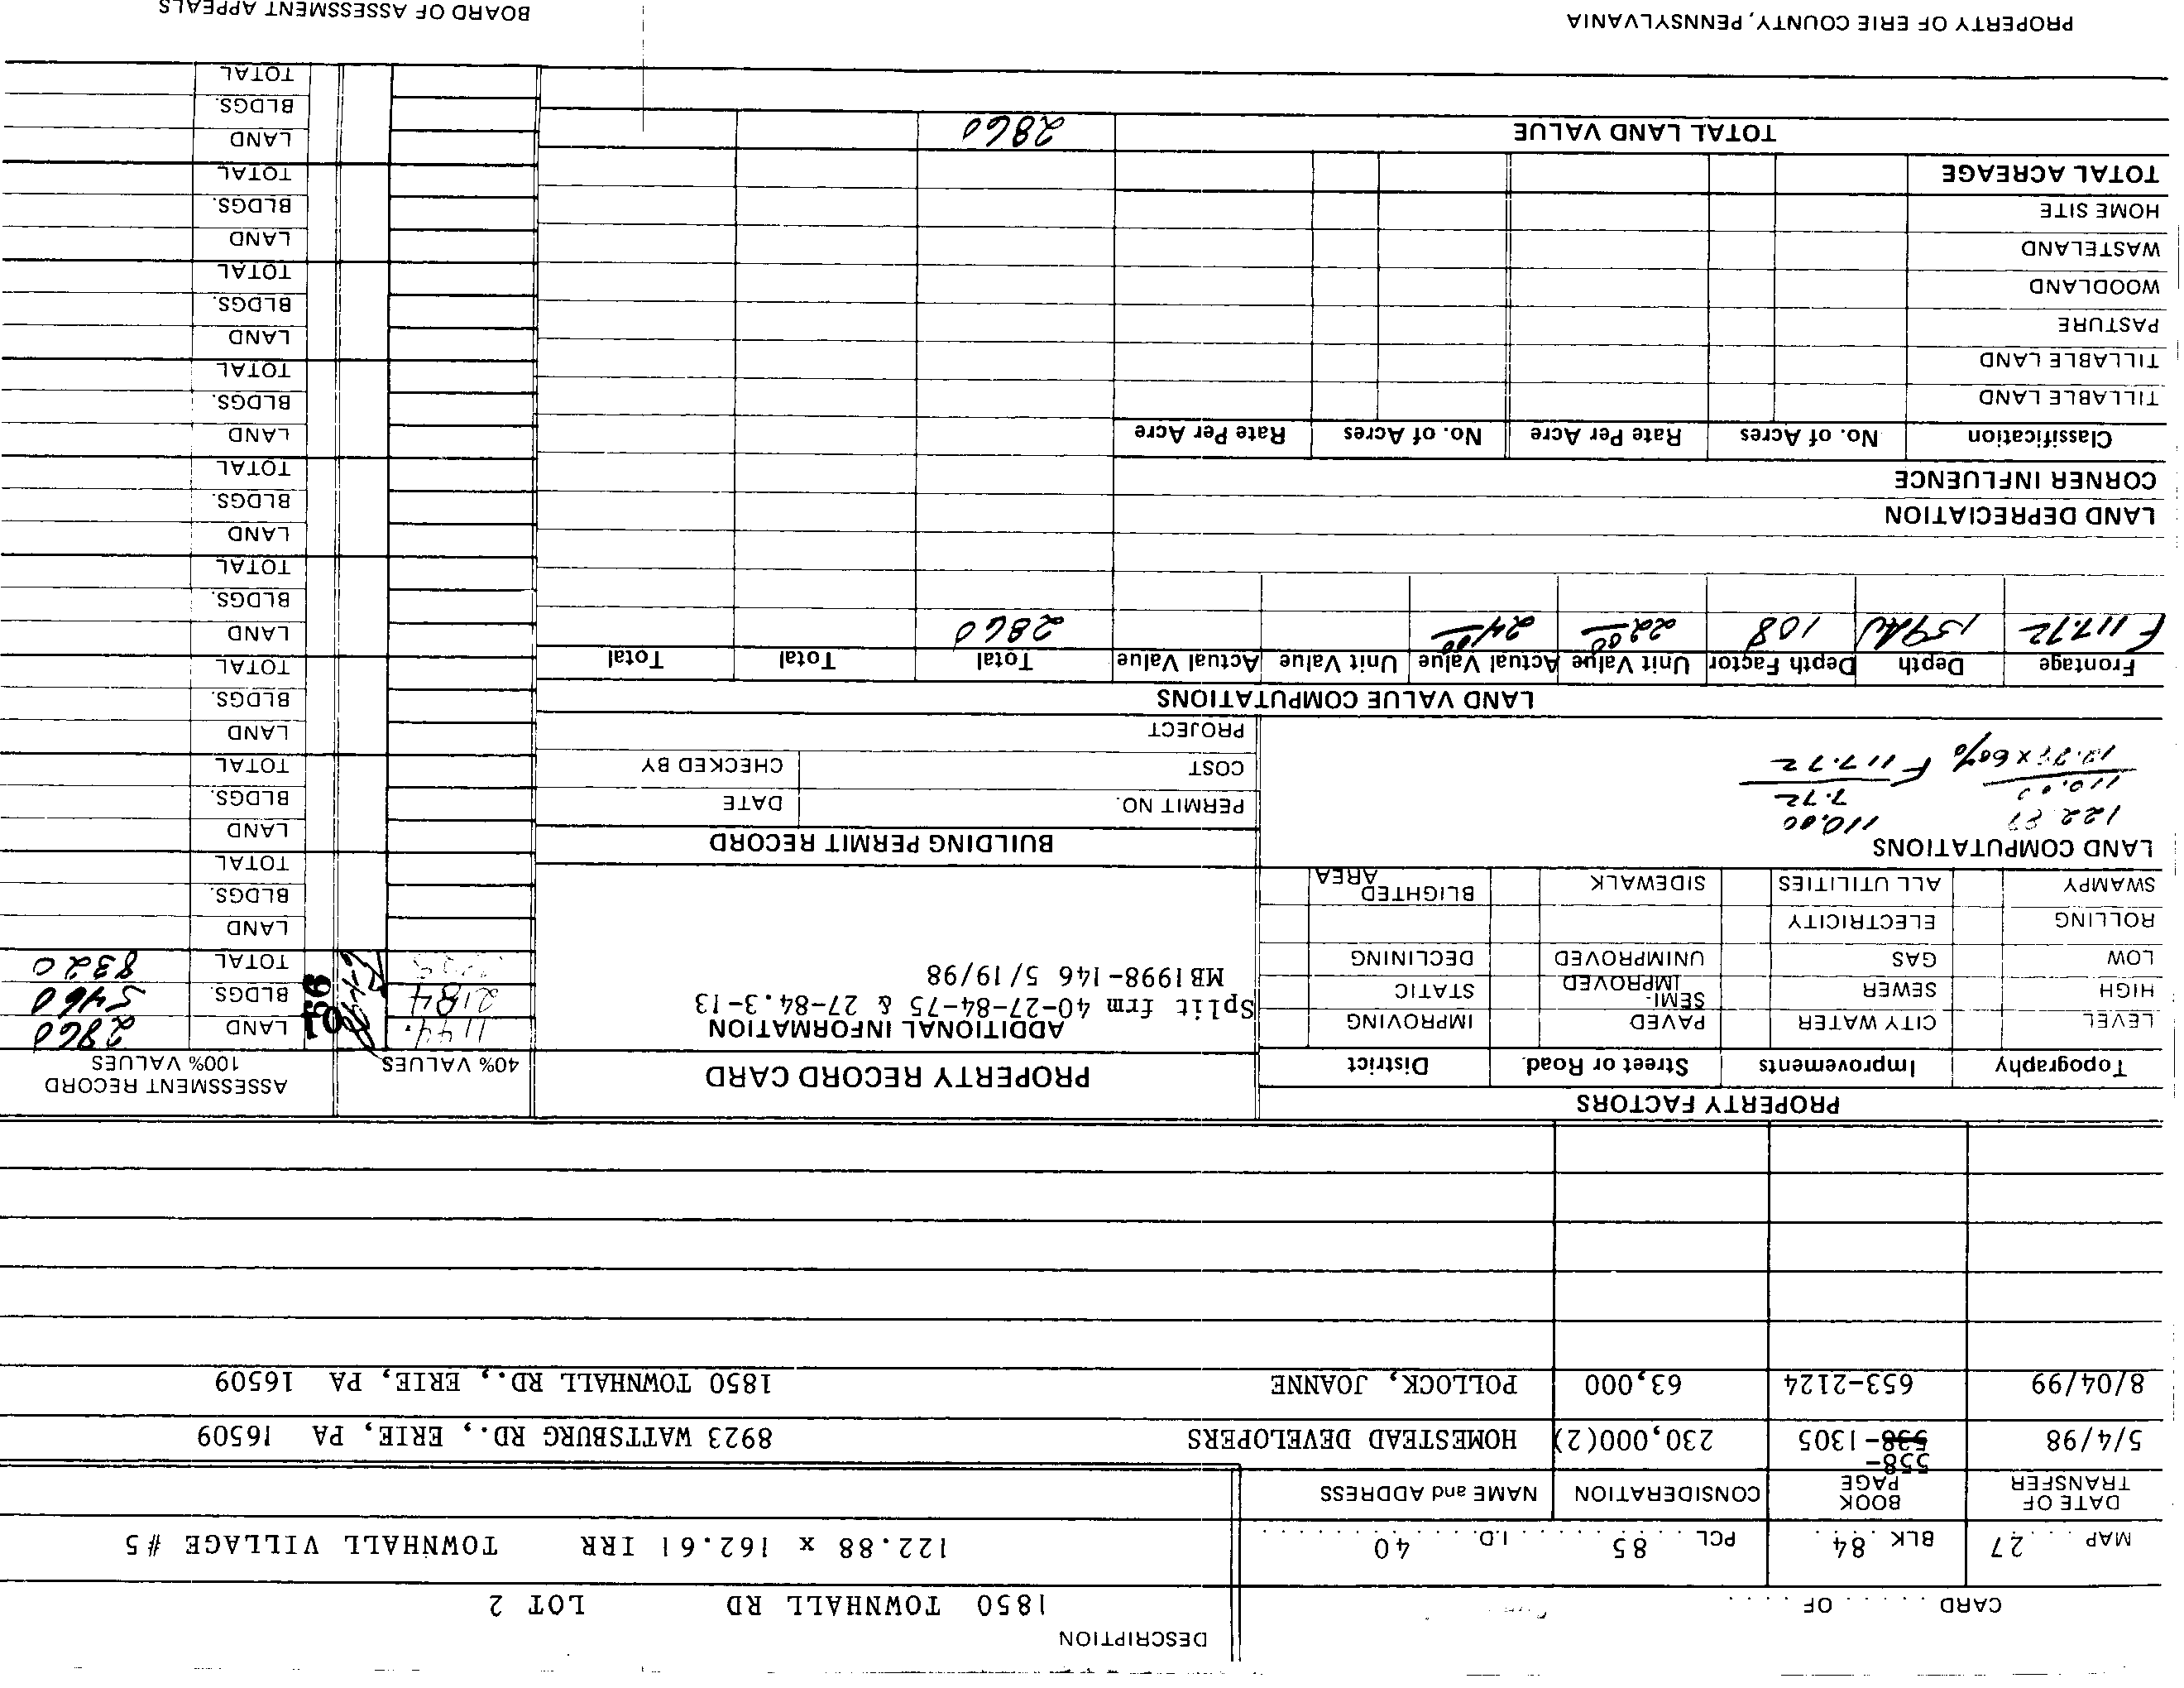 DESCRIPTION
CARD . . . . . . OF . . . . .
1850 TOWNHALL RD LOT 2
MAP 27 BLK 84 PCL 85 I.D. 40
122.88 x 162.61 IRR TOWNHALL VILLAGE #5
DATE OF TRANSFER BOOK PAGE CONSIDERATION NAME and ADDRESS
558-
5/4/98 538-1305 230,000(2) HOMESTEAD DEVELOPERS 8923 WATTSBURG RD., ERIE, PA 16509
8/04/99 653-2124 63,000 POLLOCK, JOANNE 1850 TOWNHALL RD., ERIE, PA 16509
PROPERTY FACTORS
Topography Improvements Street or Road. District
LEVEL CITY WATER PAVED IMPROVING
HIGH SEWER SEMI-IMPROVED STATIC
LOW GAS UNIMPROVED DECLINING
ROLLING ELECTRICITY
SWAMPY ALL UTILITIES SIDEWALK BLIGHTED AREA
PROPERTY RECORD CARD
ADDITIONAL INFORMATION
Split frm 40-27-84-75 & 27-84.3-13
MB1998-146 5/19/98
BUILDING PERMIT RECORD
PERMIT NO. DATE
COST CHECKED BY
PROJECT
40% VALUES ASSESSMENT RECORD 100% VALUES
1144. LAND 2860
2184 BLDGS. 5460
TOTAL 8320
LAND
BLDGS.
TOTAL
LAND
BLDGS.
TOTAL
LAND
BLDGS.
TOTAL
LAND
BLDGS.
TOTAL
LAND
BLDGS.
TOTAL
LAND
BLDGS.
TOTAL
LAND
BLDGS.
TOTAL
LAND
BLDGS.
TOTAL
LAND
BLDGS.
TOTAL
LAND COMPUTATIONS
110.00
110.00 7.72
x 60% F 117.72
LAND VALUE COMPUTATIONS
Frontage Depth Depth Factor Unit Value Actual Value Unit Value Actual Value Total Total Total
F 117.72 108 22.00 24.00 2860
LAND DEPRECIATION
CORNER INFLUENCE
Classification No. of Acres Rate Per Acre No. of Acres Rate Per Acre
TILLABLE LAND
TILLABLE LAND
PASTURE
WOODLAND
WASTELAND
HOME SITE
TOTAL ACREAGE
TOTAL LAND VALUE 2860
PROPERTY OF ERIE COUNTY, PENNSYLVANIA BOARD OF ASSESSMENT APPEALS